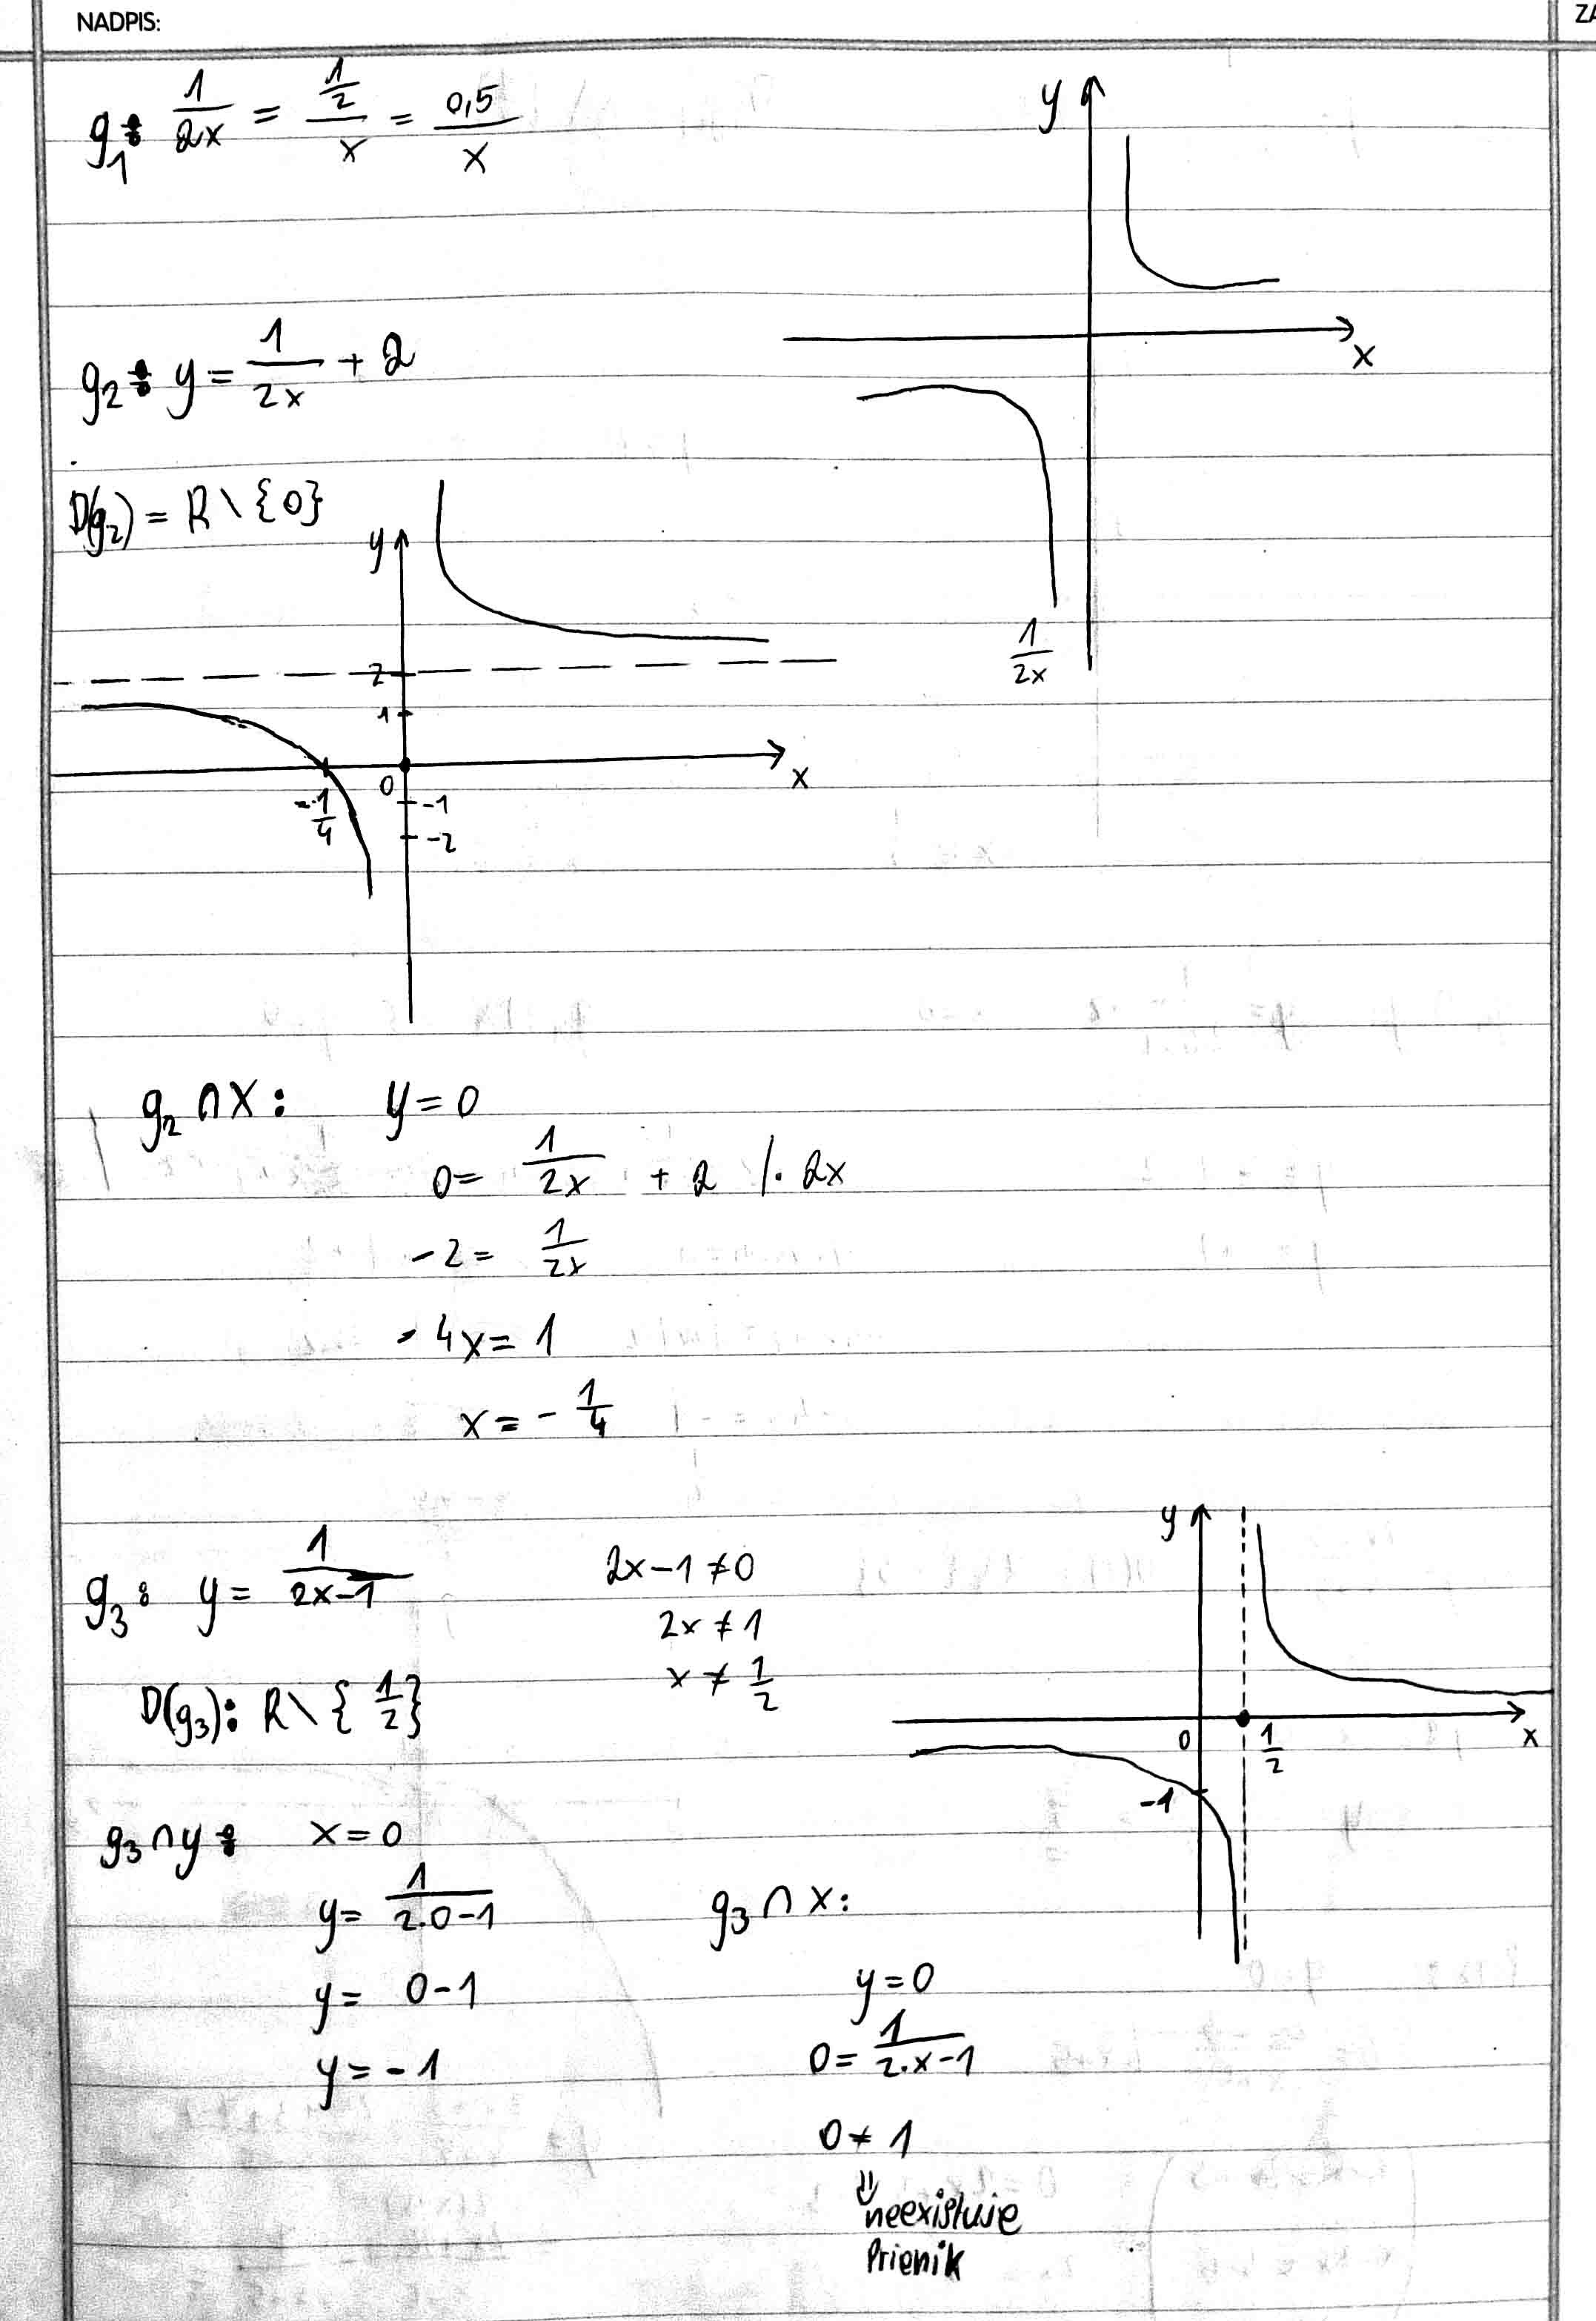 NADPIS:
ZA
g₁: 1/2x = ½/x = 0,5/x
y
x
1/2x
g₂: y = 1/2x + 2
D(g₂) = R \ {0}
y
2
1
0
x
-1/4
-1
-2
g₂ ∩ X: y = 0
0 = 1/2x + 2 /· 2x
-2 = 1/2x
- 4x = 1
x = - 1/4
g₃: y = 1/2x-1
2x-1 ≠ 0
2x ≠ 1
x ≠ 1/2
D(g₃): R \ {1/2}
y
0
1/2
x
-1
g₃ ∩ y: x = 0
y = 1/2.0-1
y = 0-1
y = -1
g₃ ∩ x:
y = 0
0 = 1/2.x-1
0 ≠ 1
⇓
neexistuje
Prienik